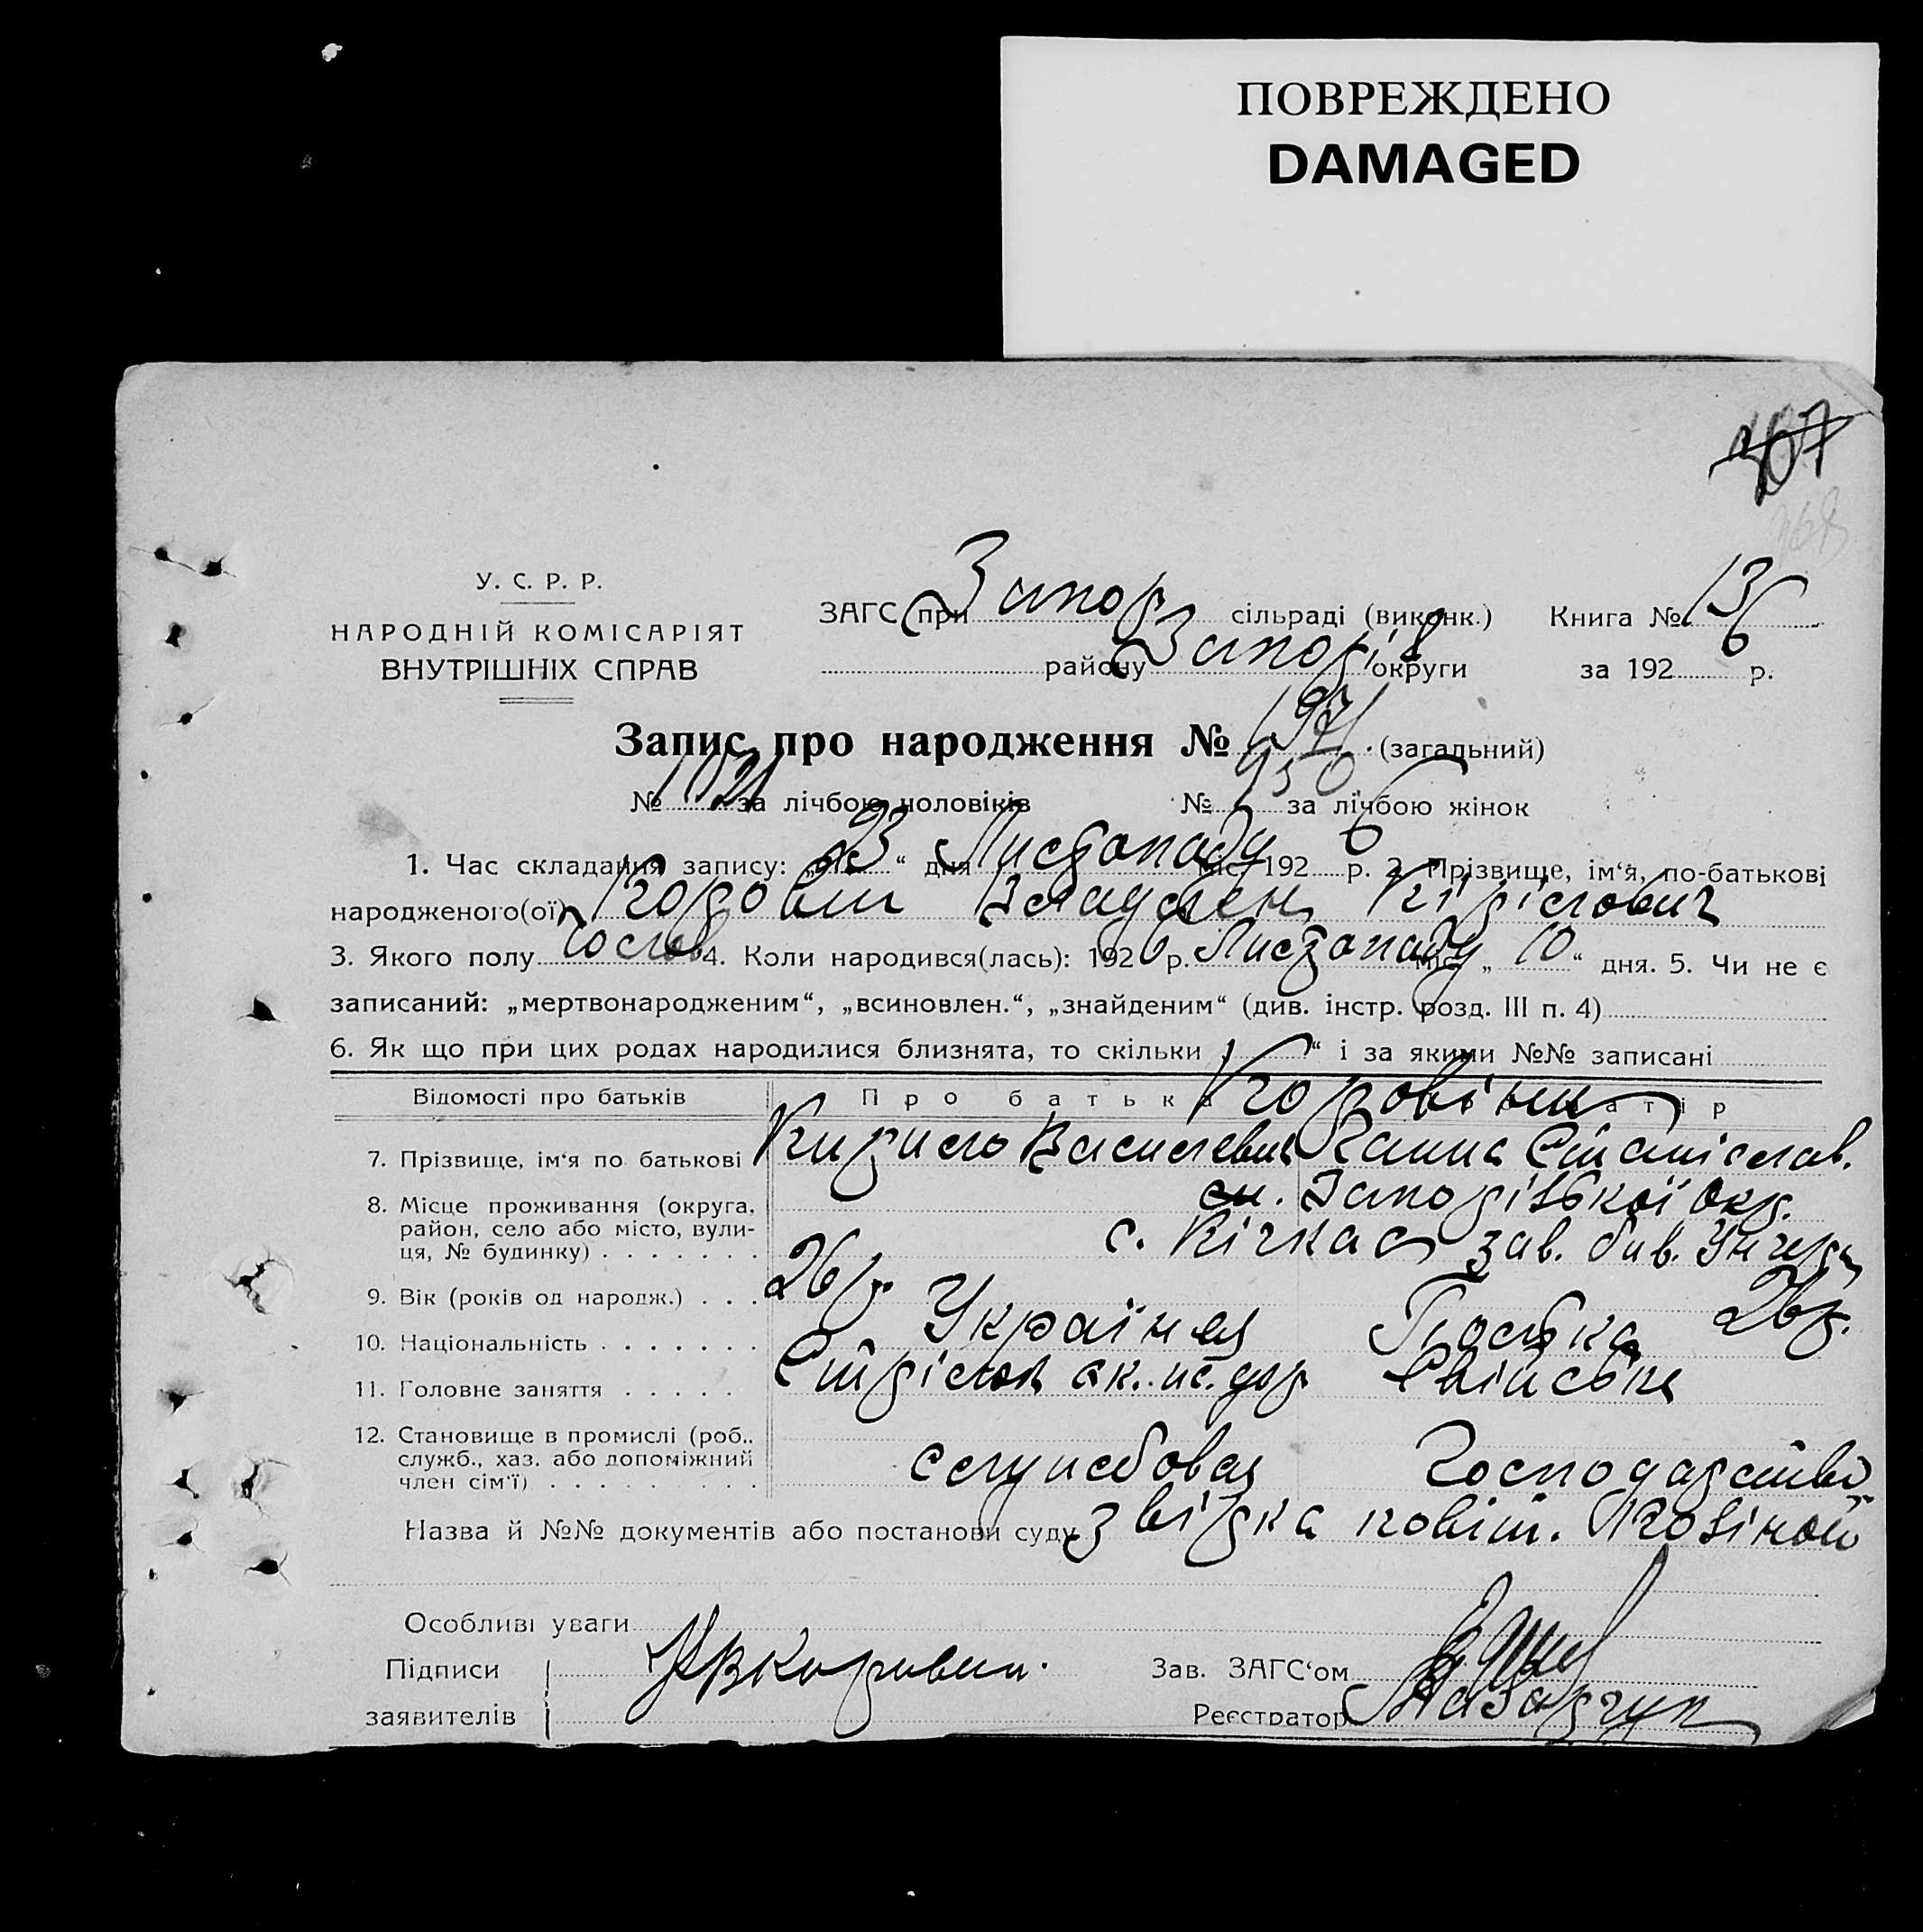 ПОВРЕЖДЕНО
DAMAGED
У. С. Р. Р.
НАРОДНІЙ КОМІСАРІЯТ
ВНУТРІШНІХ СПРАВ
ЗАГС при Запор сільраді (виконк.) Книга № 13
району Запоріз округи за 1926 р.
Запис про народження № 1971 (загальний)
№ 1021 за лічбою чоловіків № 950 за лічбою жінок
1. Час складання запису: „23“ дня Листопаду міс. 1926 р. 2. Прізвище, ім‘я, по-батькові
народженого(ої) Коровін Кірілович
3. Якого полу 4. Коли народився(лась): 1926 р. Листопаду міс. „10“ дня. 5. Чи не є
записаний: „мертвонародженим“, „всиновлен.“, „знайденим“ (див. інстр. розд. III п. 4)
6. Як що при цих родах народилися близнята, то скільки „ “ і за якими №№ записані
Відомості про батьків Про батька Коровіни
7. Прізвище, ім‘я по батькові Кирило Василевич Ганна Станіслав.
8. Місце проживання (округа, район, село або місто, вулиця, № будинку) Запорізької Окр.
с. Кічкас зав. бив. Унгера
9. Вік (років од народж.) 26 р. 26 р.
10. Національність Українец Полька
11. Головне заняття Стрілок Свійське
12. Становище в промислі (роб., служб., хаз. або допоміжний член сім‘ї) служебовец Господарство
Назва й №№ документів або постанови суду Звірка повіт.
Особливі уваги
Підписи заявителів Зав. ЗАГС‘ом
Реєстратор